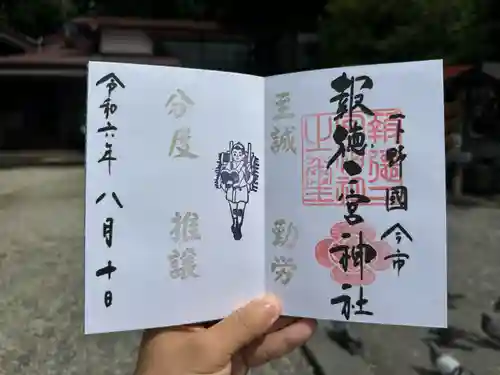 下野國 今市
報徳二宮神社
至誠 勤労
分度 推譲
令和六年 八月十日